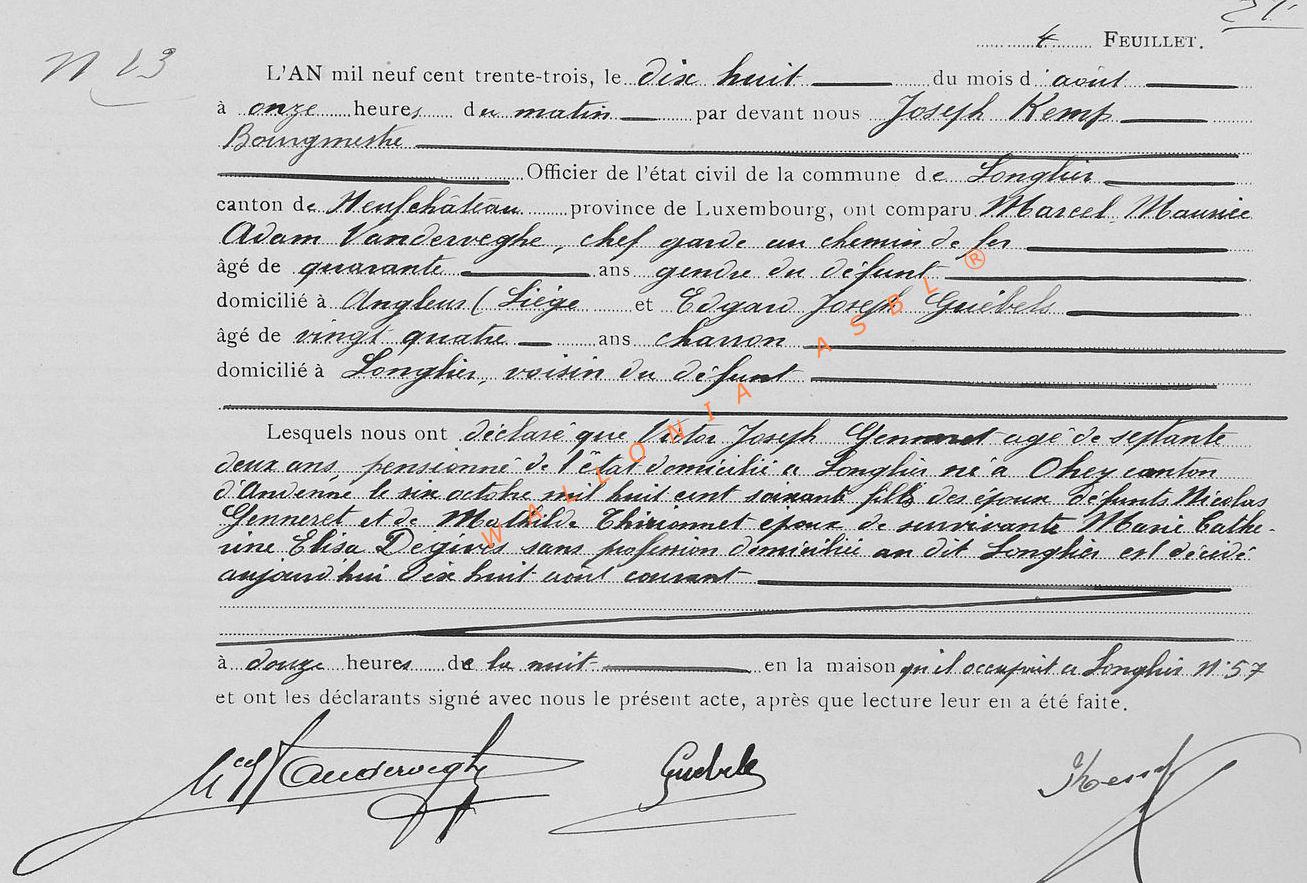 4 FEUILLET.
N 23
L'AN mil neuf cent trente-trois, le dix huit du mois d'août
à onze heures du matin par devant nous Joseph Kemp
Bourgmestre
Officier de l'état civil de la commune de Longlier
canton de Neufchâteau province de Luxembourg, ont comparu Marcel Maurice
Adam Vanderveghe, chef garde au chemin de fer
âgé de quarante ans gendre du défunt
domicilié à Angleur (Liége et Edgard Joseph Guébels
âgé de vingt quatre ans charron
domicilié à Longlier, voisin du défunt
Lesquels nous ont déclaré que Victor Joseph Genneret agé de septante
deux ans, pensionné de l'état domicilié à Longlier né à Ohey canton
d'Andenne le six octobre mil huit cent soixante fils des époux défunts Nicolas
Genneret et de Mathilde Thirionnet époux de survivante Marie Cathe-
rine Elisa Degives sans profession domiciliée au dit Longlier est décédé
aujourd'hui dix huit août courant
à douze heures de la nuit en la maison qu'il occupait à Longlier N°57
et ont les déclarants signé avec nous le présent acte, après que lecture leur en a été faite.
Mcel Vanderveghe Guebels Kemp
WALLONIA ASBL ®